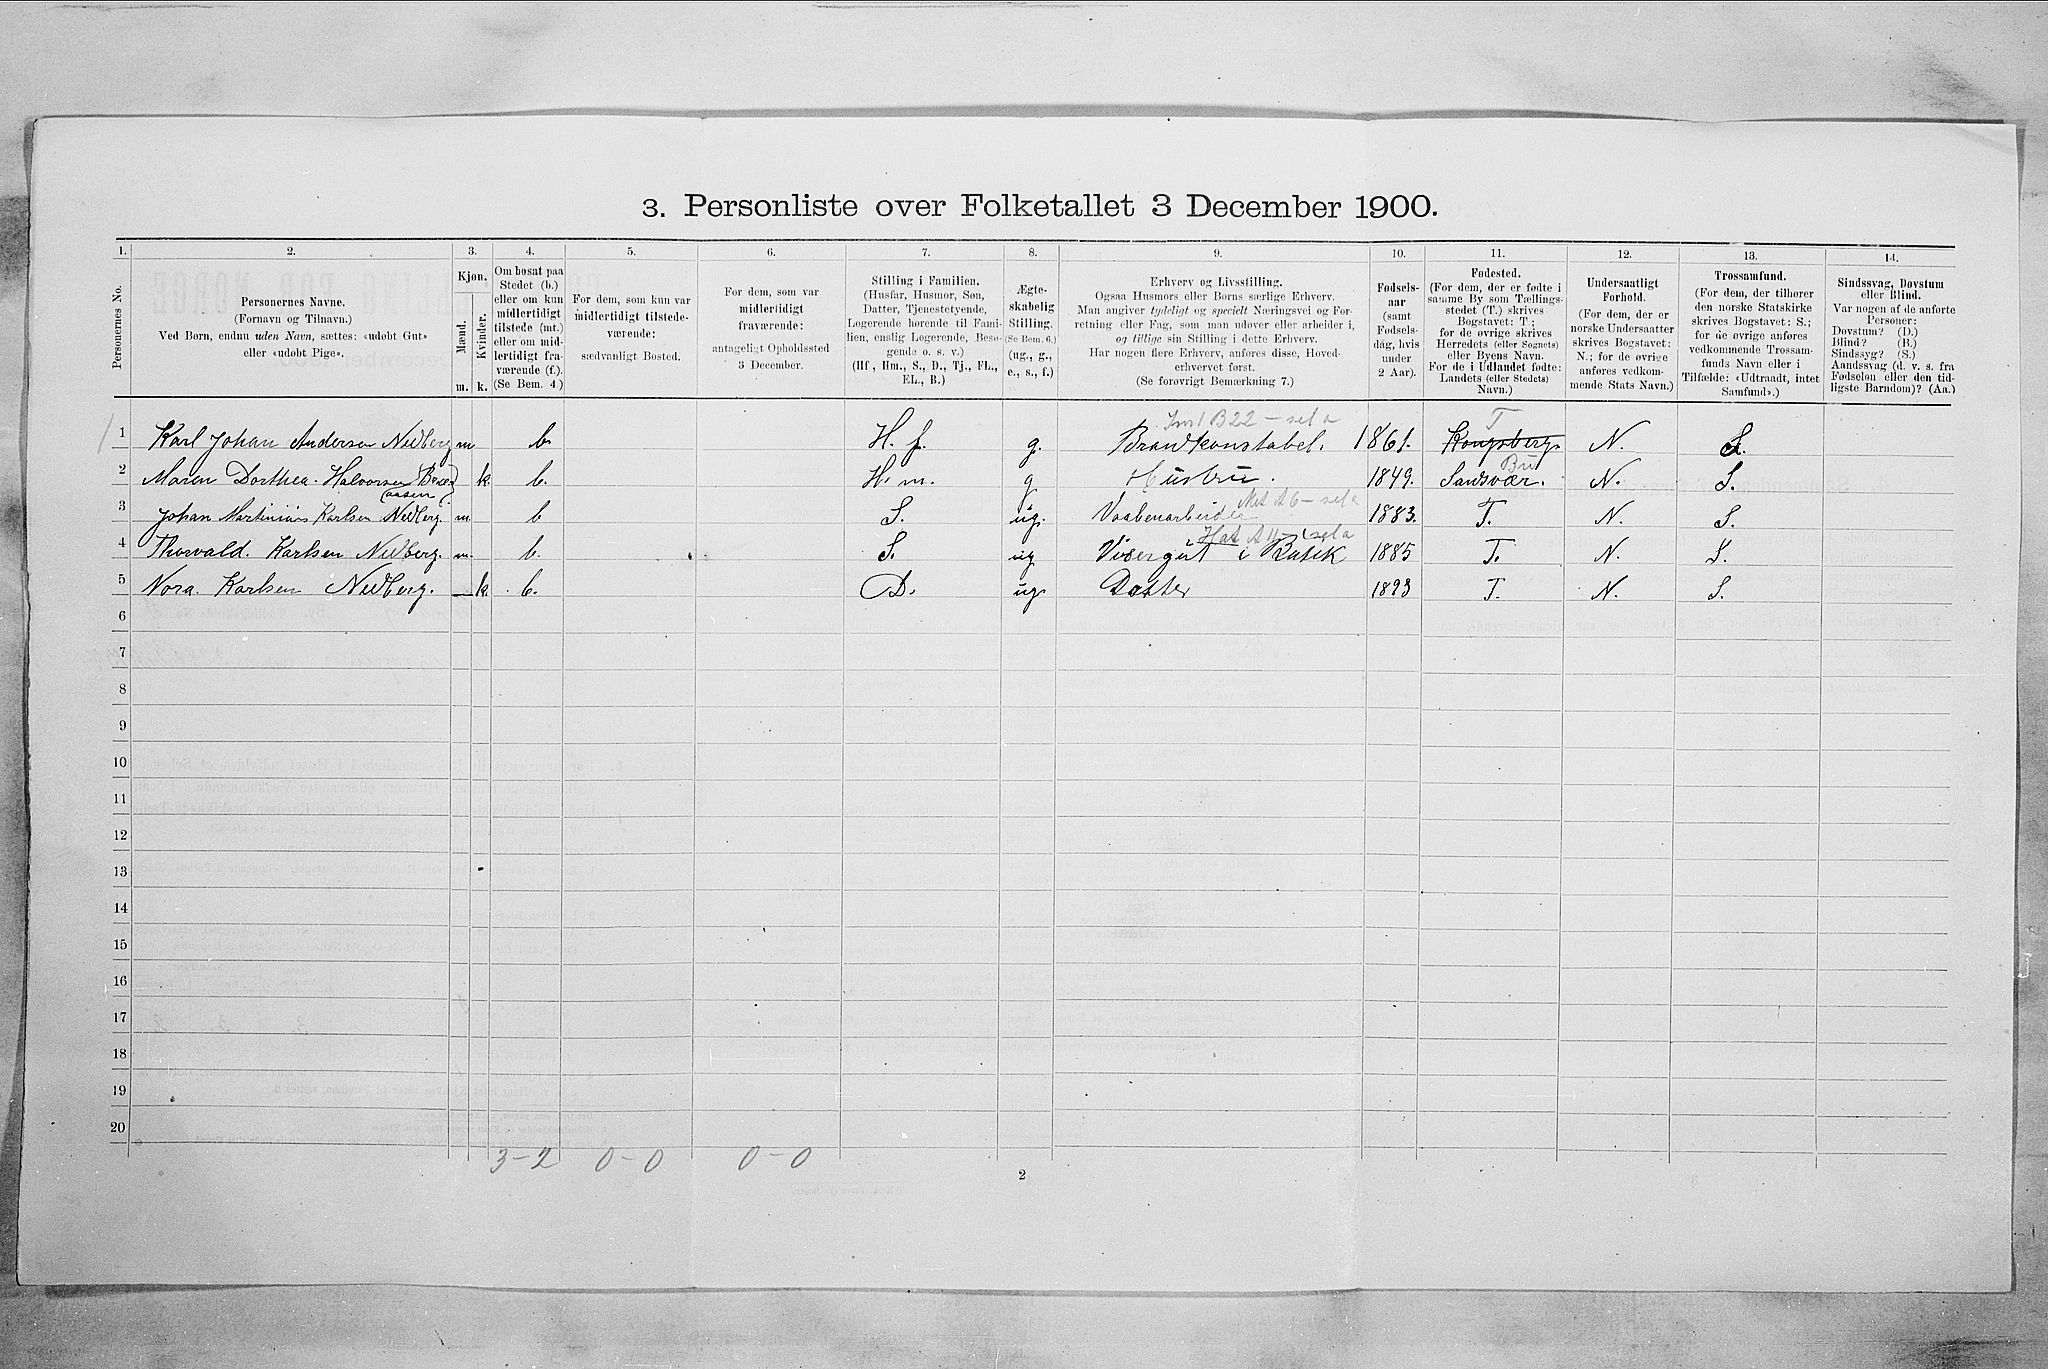 3. Personliste over Folketallet 3 December 1900.
1. 2. 3. 4. 5. 6. 7. 8. 9. 10. 11. 12. 13. 14.
Personernes No.
Personernes Navne.
(Fornavn og Tilnavn.)
Ved Børn, endnu uden Navn, sættes: «udøbt Gut»
eller «udøbt Pige».
Kjøn.
Mænd.
Kvinder.
m. k.
Om bosat paa
Stedet (b.)
eller om kun
midlertidigt
tilstede (mt.)
eller om mid-
lertidigt fra-
værende (f.).
(Se Bem. 4.)
For dem, som kun var
midlertidigt tilstede-
værende:
sædvanligt Bosted.
For dem, som var
midlertidigt
fraværende:
antageligt Opholdssted
3 December.
Stilling i Familien.
(Husfar, Husmor, Søn,
Datter, Tjenestetyende,
Logerende hørende til Fami-
lien, enslig Logerende, Besø-
gende o. s. v.)
(Hf., Hm., S., D., Tj., FL.,
EL., B.)
Ægte-
skabelig
Stilling.
(Se Bem. 6.)
(ug., g.,
e., s., f.)
Erhverv og Livsstilling.
Ogsaa Husmors eller Børns særlige Erhverv.
Man angiver tydeligt og specielt Næringsvei og For-
retning eller Fag, som man udøver eller arbeider i,
og tillige sin Stilling i dette Erhverv.
Har nogen flere Erhverv, anføres disse, Hoved-
erhvervet først.
(Se forøvrigt Bemærkning 7.)
Fødsels-
aar
(samt
Fødsels-
dag, hvis
under
2 Aar).
Fødested.
(For dem, der er fødte i
samme By som Tællings-
stedet (T.) skrives
Bogstavet: T;
for de øvrige skrives
Herredets (eller Sognets)
eller Byens Navn.
For de i Udlandet fødte:
Landets (eller Stedets)
Navn.)
Undersaatligt
Forhold.
(For dem, der er
norske Undersaatter
skrives Bogstavet:
N.; for de øvrige
anføres vedkom-
mende Stats Navn.)
Trossamfund.
(For dem, der tilhører
den norske Statskirke
skrives Bogstavet: S.;
for de øvrige anføres
vedkommende Trossam-
funds Navn eller i
Tilfælde: «Udtraadt, intet
Samfund».)
Sindssvag, Døvstum
eller Blind.
Var nogen af de anførte
Personer:
Døvstum? (D.)
Blind? (B.)
Sindssyg? (S.)
Aandssvag (d. v. s. fra
Fødselen eller den tid-
ligste Barndom)? (Aa.)
B22 T
1 Karl Johan Andersen Nedberg m b. H. f. g. Brandkonstabel. 1861. Kongsberg. N. S.
Bu
2 Maren Dorthea Halvorsen k. b. H. m. g Hustru. 1849. Sandsvær. N. S.
(aasen)
3 Johan Martinius Karlsen Nedberg. m. b S. ug. Vaabenarbeider 1883. T. N. S.
4 Thorvald. Karlsen Nedberg. m. b. S. ug Visergut i Butik 1885 T. N. S.
5 Nora. Karlsen Nedberg. k. b. D. ug. Datter 1893 T. N. S.
6
7
8
9
10
11
12
13
14
15
16
17
18
19
20
3-2 0-0 0-0
2